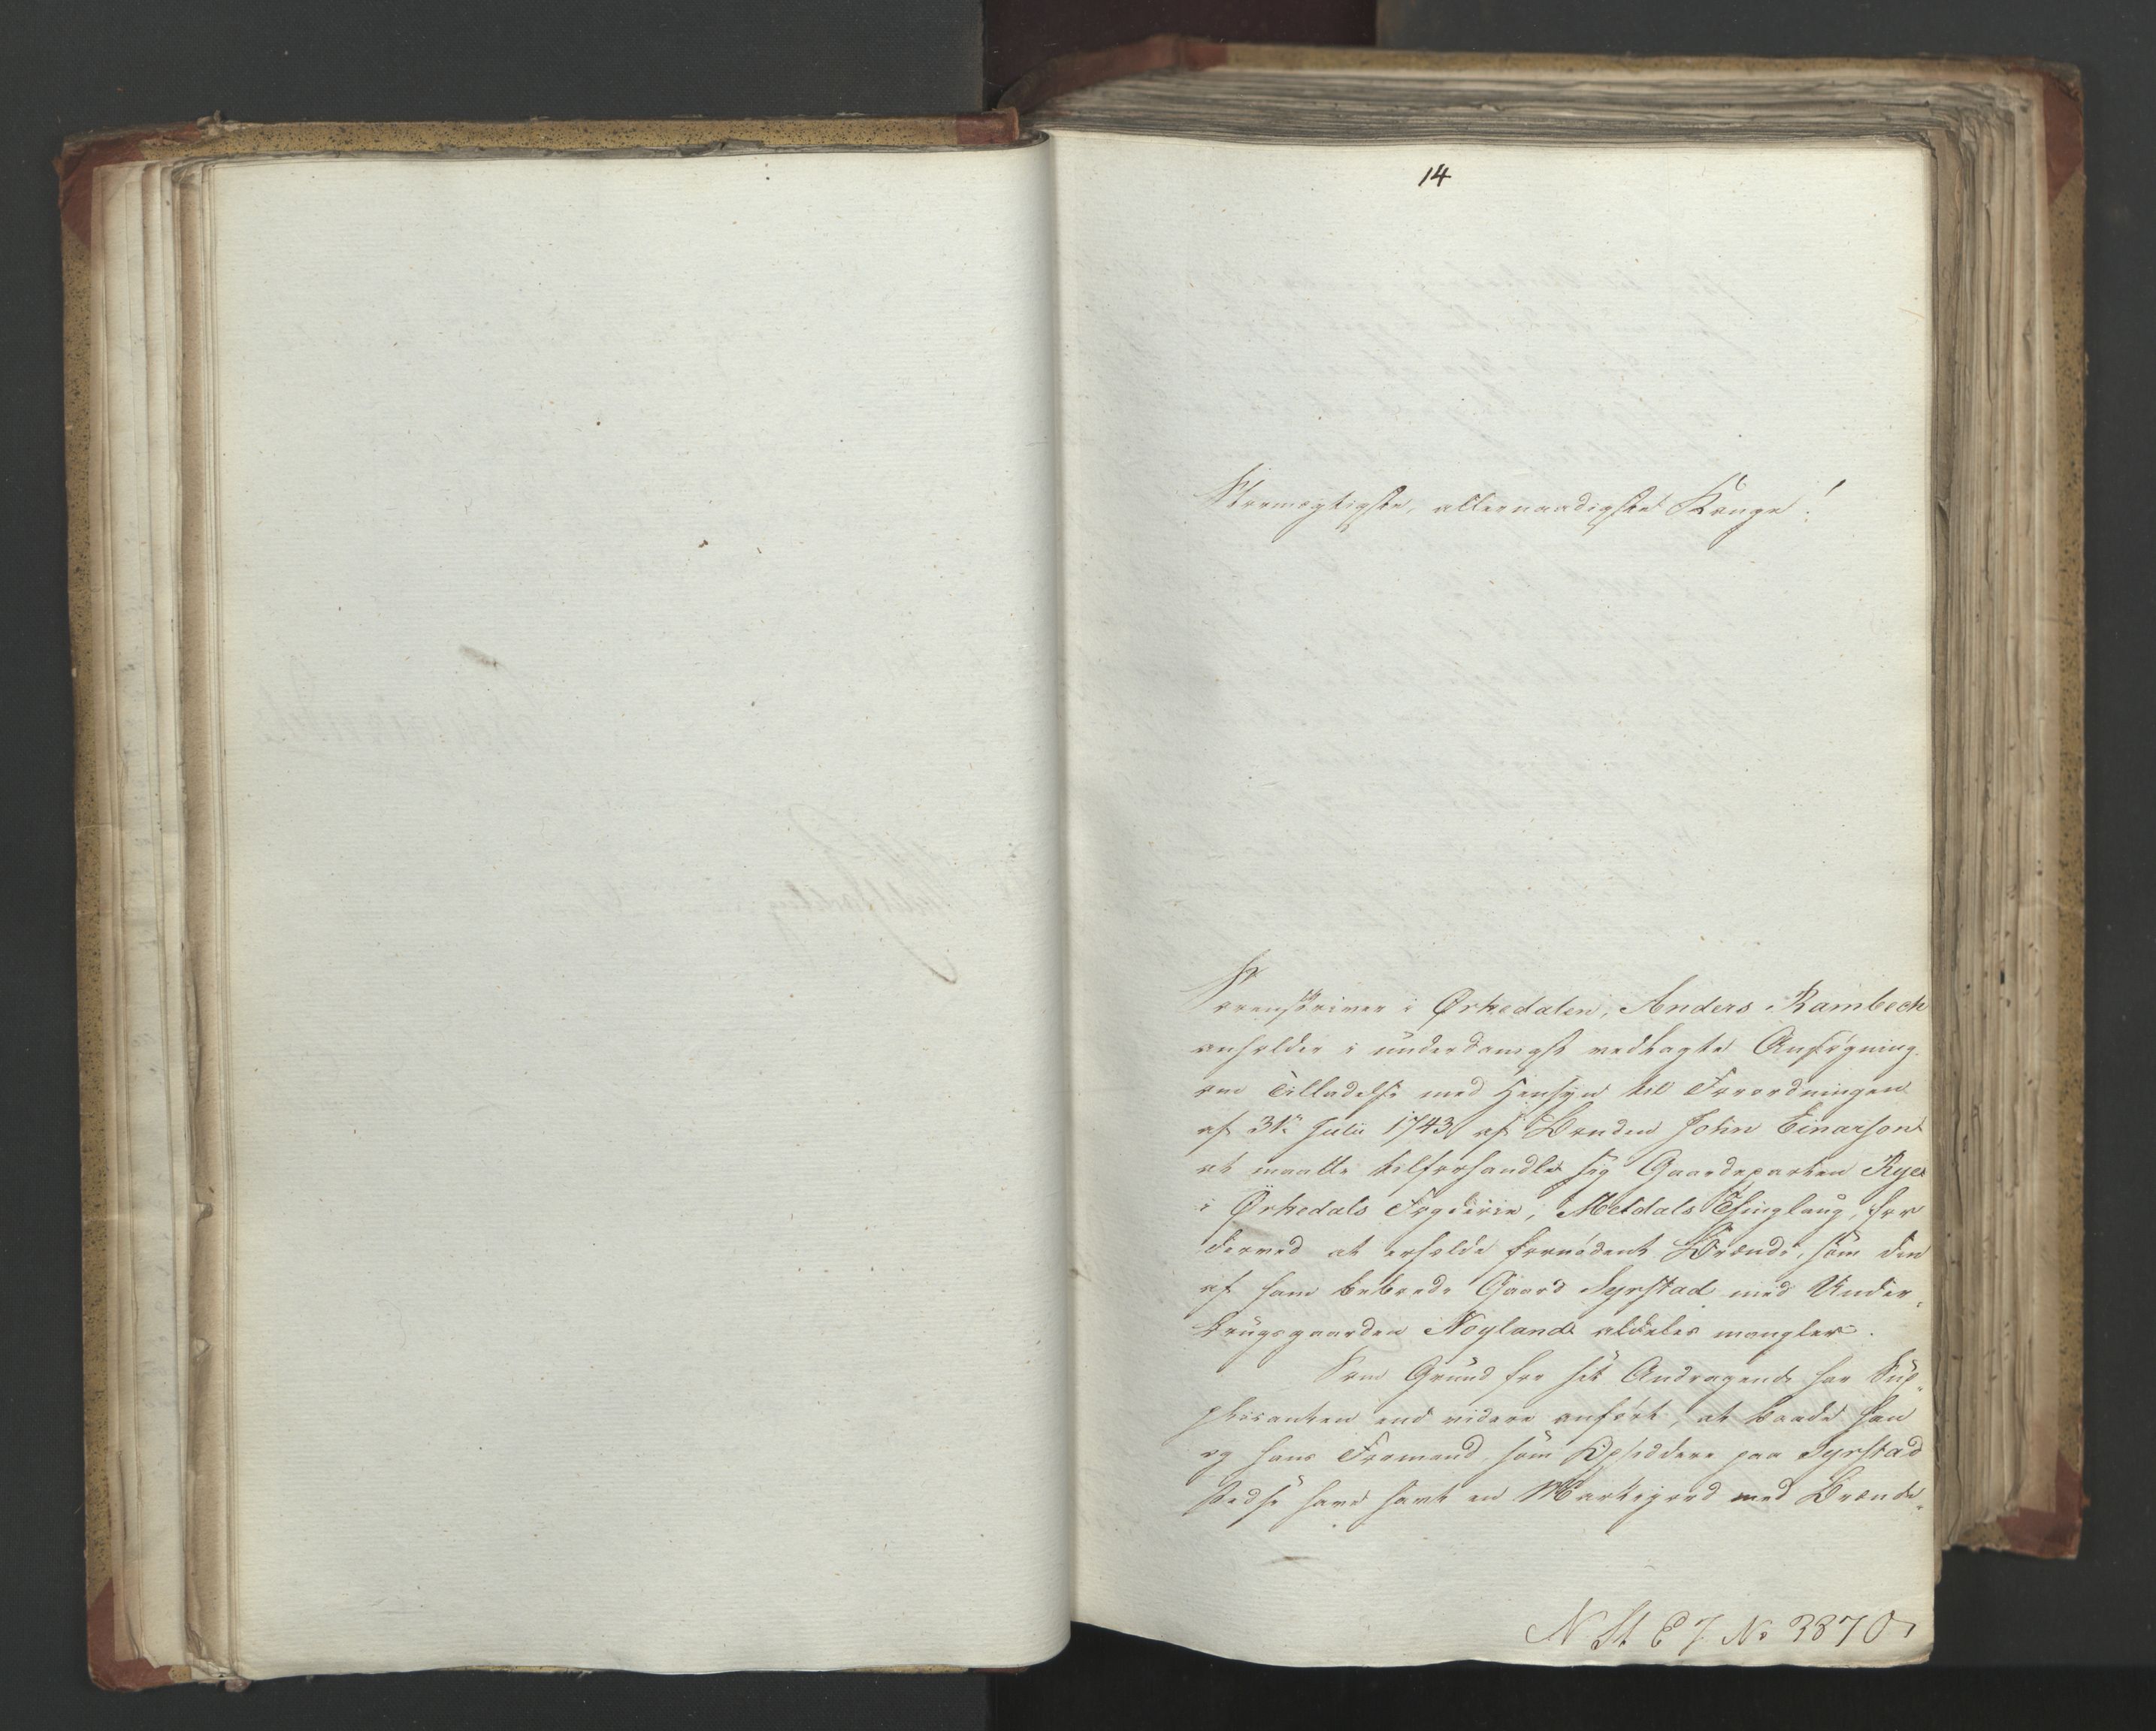 14
Stormægtigste, allernaadigste Konge!
Sorenskriver i Ørkedalen, Anders Rambech
anholder i underdanigst vedlagte Ansøgning
om Tilladelse med Hensyn til Forordningen
af 31te Julii 1743 af Bonden John Einarson
at maatte tilforhandle sig Gaardeparten Rye
i Ørkedals Fogderie, Meldals Thinglaug, for
derved at erholde fornødent Brænde, som den
af ham beboede Gaard Syrstad med Under-
brugsgaarden Nøgland aldeles mangler.
Som Grund for sit Andragende har Sup-
plicanten end videre anført, at baade han
og hans Formand som Opsiddere paa Syrstad
stedse have havt en Markejord med Brænde-
N St E 7 No 3870